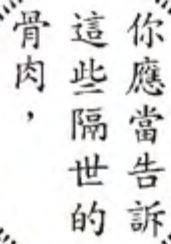 你應當告訴
這些隔世的
骨肉，